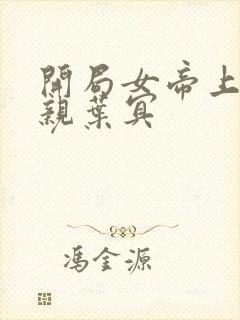 開局女帝上
親葉宾
馮金源